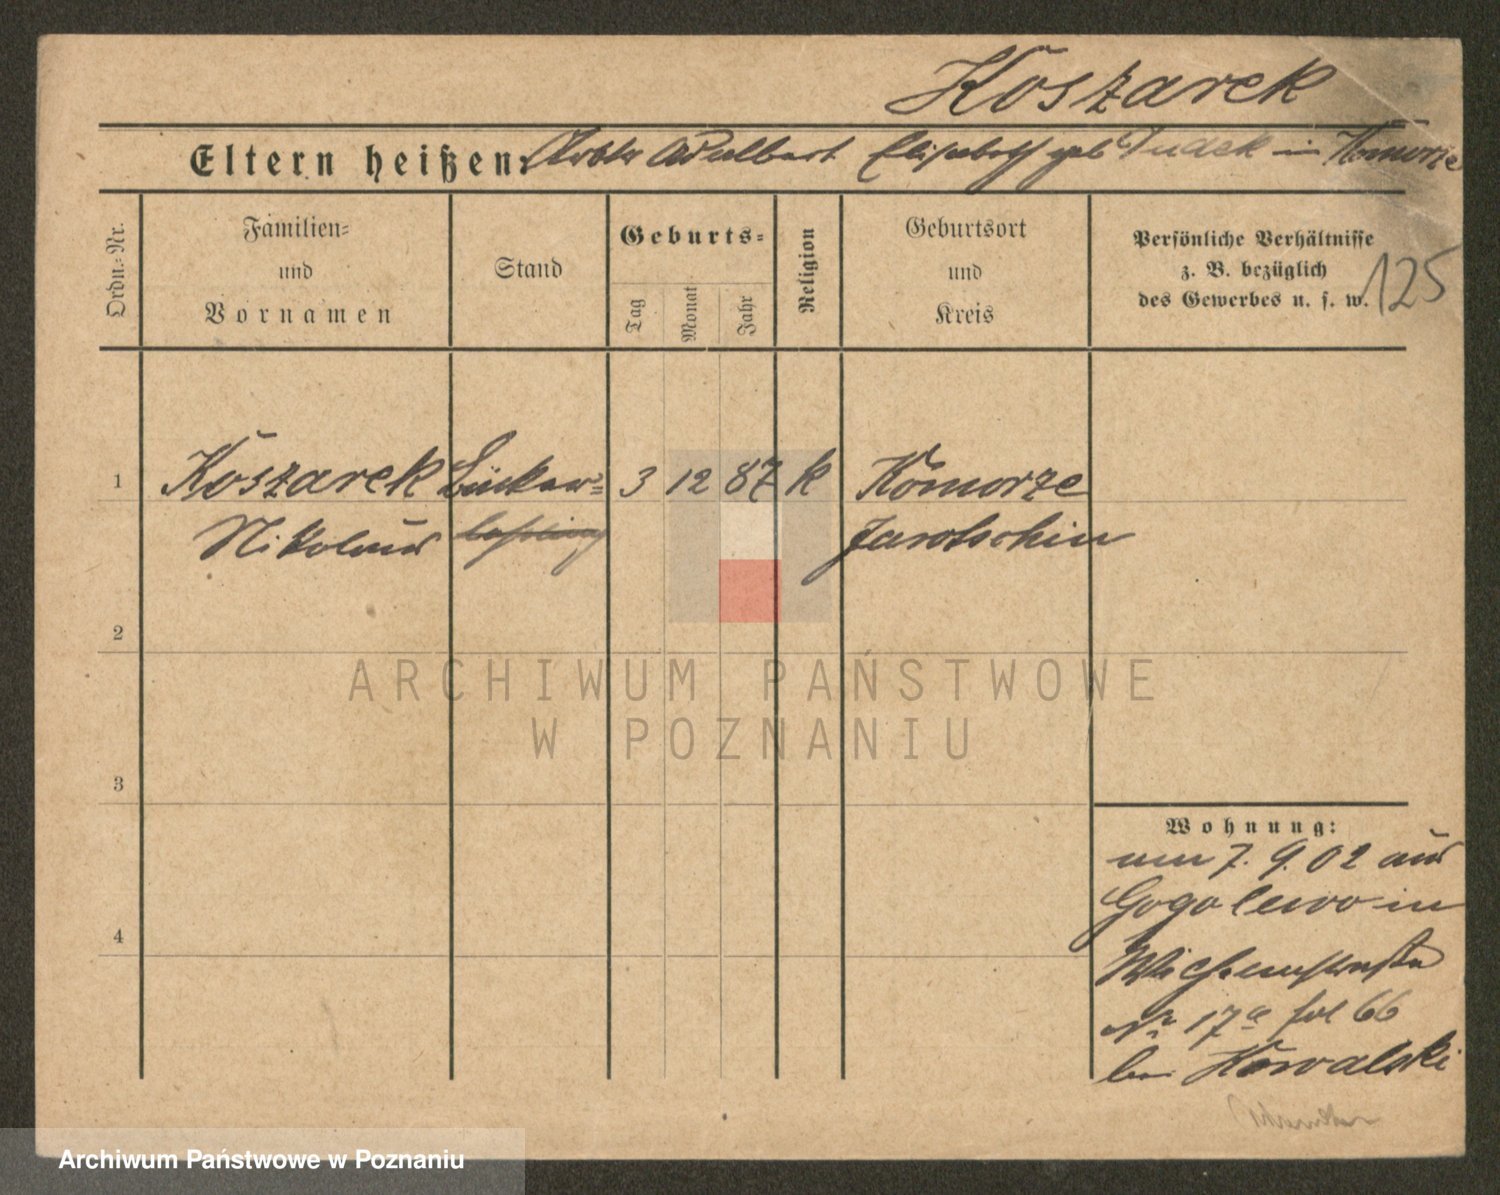 Koszarek
Eltern heißen: Arbtr Adalbert Elisabeth geb Dudek in Komorze
Ordn.-Nr.
Familien-
und
Vornamen
Stand
Geburts-
Tag
Monat
Jahr
Religion
Geburtsort
und
Kreis
Persönliche Verhältnisse
z. B. bezüglich
des Gewerbes u. s. w.
125
1 Koszarek Bäcker- 3 12 87 k Komorze
Nikolaus lehrling Jarotschin
2
3
4
ARCHIWUM PAŃSTWOWE
W POZNANIU
Wohnung:
am 7. 9. 02 aus
Gogolewo in
No 17a fol 66
bei Kowalski
Archiwum Państwowe w Poznaniu